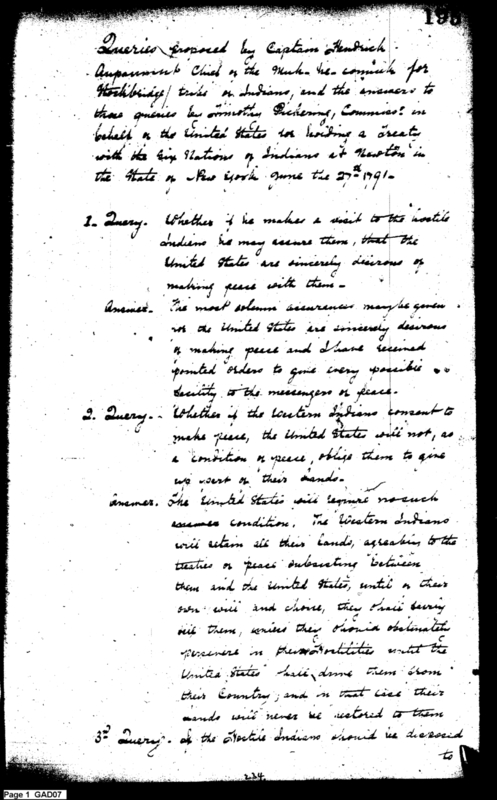 195
Queries proposed by Captain Hendrick
Aupaumut Chief of the Muh-he-connuk for
Stockbridge/ tribe of Indians, and the answers to
those queries by Timothy Pickering, Commissr. in
behalf of the United States for holding a Treaty
with the Six Nations of Indians at Newton in
the State of New York June the 27th 1791-
1- Query. Whether if he makes a visit to the hostile
Indians he may assure them, that the
United States are sincerely desirous of
making peace with them-
Answer. The most solemn assurances may be given
for the United States are sincerely desirous
of making peace and I have received
pointed orders to give every possible
facility to the messengers of peace.
2. Query. - Whether if the Western Indians consent to
make peace, the United States will not, as
a condition of peace, oblige them to give
up part of their lands.
Answer. The United States will require no such
condition. The Western Indians
will retain all their lands, agreeably to the
treaties of peace subsisting between
them and the United States, until of their
own will and choice, they shall
sell them, unless they should obstinately
persevere in their hostilities until the
United States shall drive them from
their Country; and in that case their
lands will never be restored to them
3d Query - If the Hostile Indians should be disposed
to
234
Page 1 GAD07